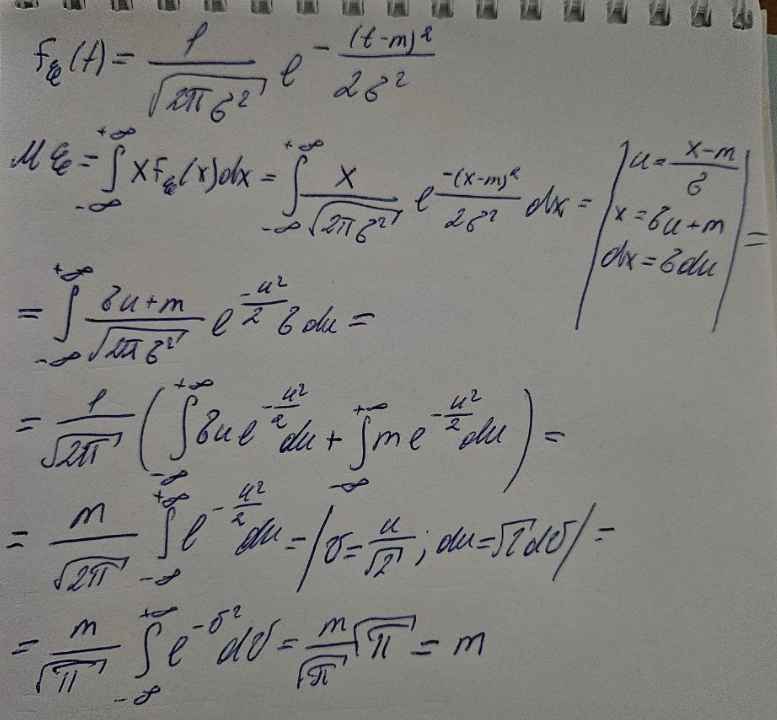 f_ξ(t) = 1/√(2πσ²) e^(-(t-m)²/2σ²)
Mξ = ∫_{-∞}^{+∞} x f_ξ(x)dx = ∫_{-∞}^{+∞} x/√(2πσ²) e^(-(x-m)²/2σ²) dx = | u = (x-m)/σ
x = σu+m
dx = σdu | =
= ∫_{-∞}^{+∞} (σu+m)/√(2πσ²) e^(-u²/2) σdu =
= 1/√(2π) ( ∫_{-∞}^{+∞} σu e^(-u²/2) du + ∫_{-∞}^{+∞} m e^(-u²/2) du ) =
= m/√(2π) ∫_{-∞}^{+∞} e^(-u²/2) du = | v = u/√2 ; du = √2 dv | =
= m/√π ∫_{-∞}^{+∞} e^(-v²) dv = m/√π √π = m